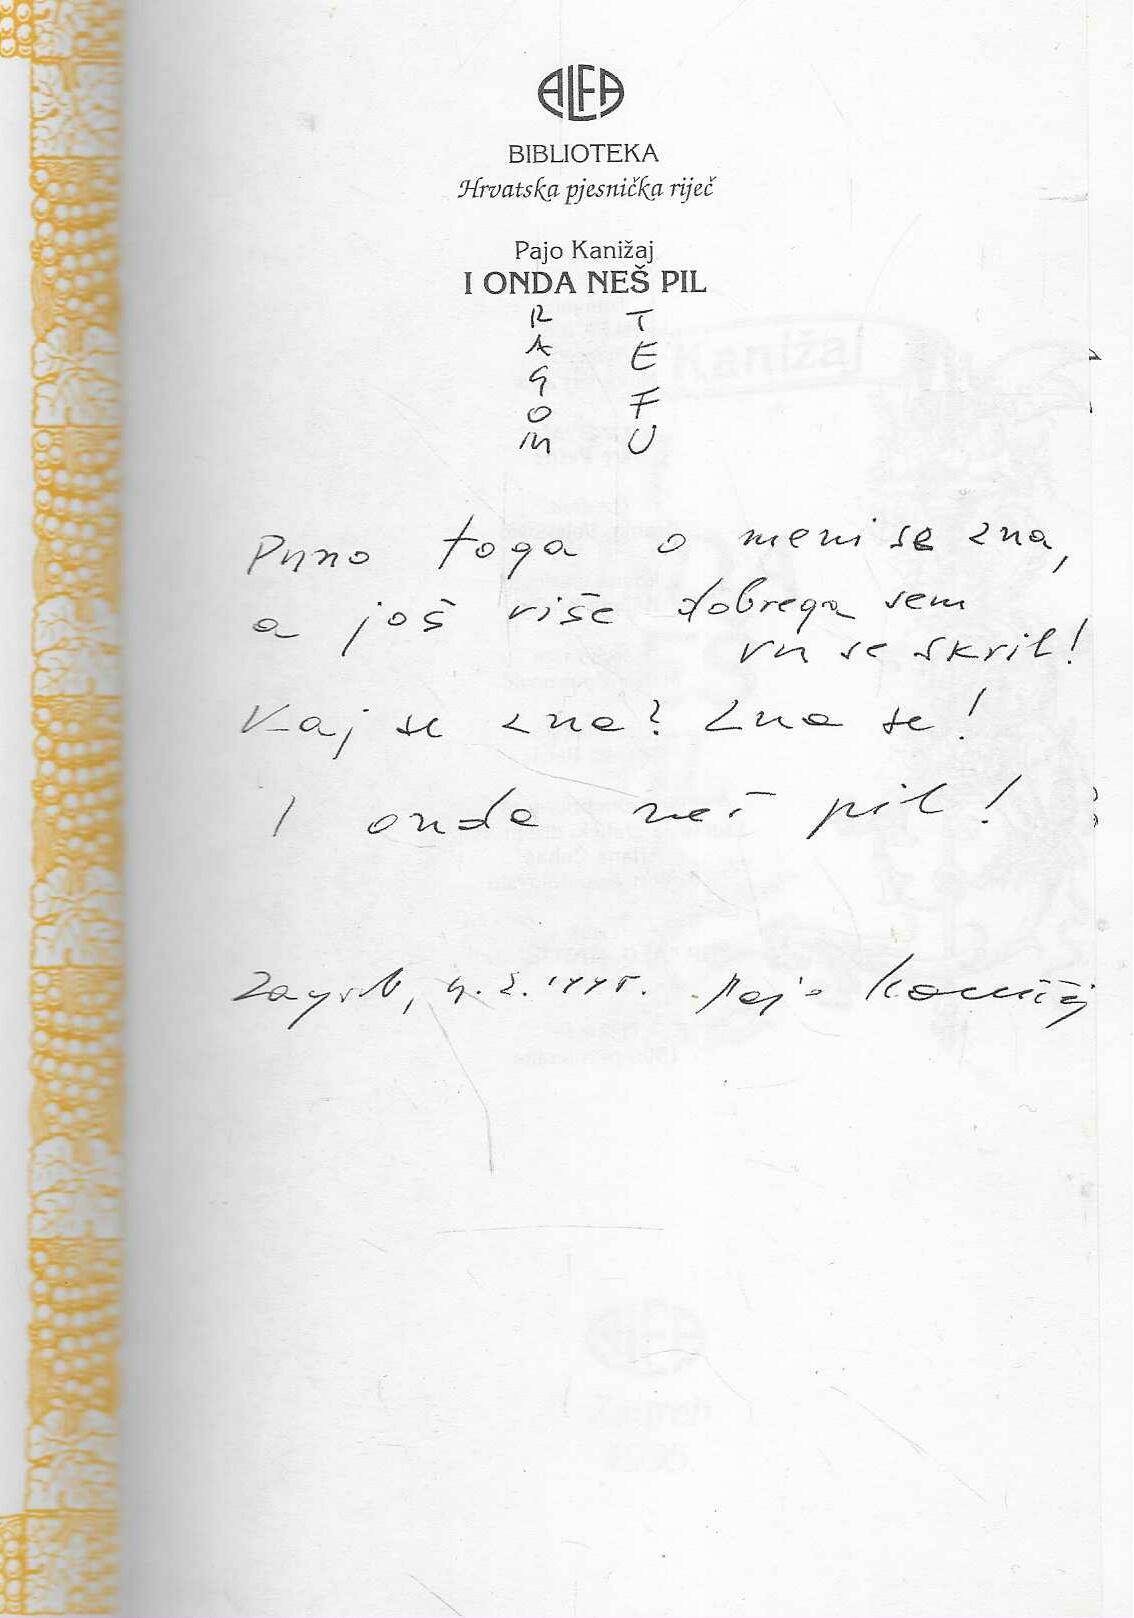 ALFA
BIBLIOTEKA
Hrvatska pjesnička riječ
Pajo Kanižaj
I ONDA NEŠ PIL
RAGOM
TEFU
Puno toga o meni se zna,
a još više dobrega sem
vu se skril!
Kaj se zna? Zna se!
I onda neš pil!
Zagreb, Pajo Kanižaj